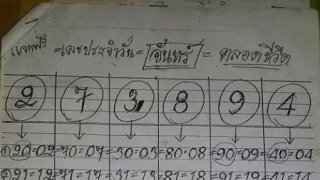 แจกฟรี =เลขประจำวัน= จันทร์ = ตลอดชีวิต
2 7 3 8 9 4
①20=02=70=07=30=03=80=08=90=09=40=04
21=12=71=17=31=13=81=18=91=19=41=14